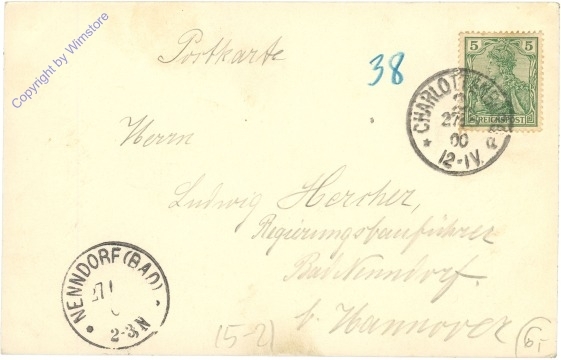 Copyright by Wimstore
Postkarte
38
5 5
REICHSPOST
27
00
12-1V.
Herrn
Ludwig Hercher,
Regierungsbauführer
Bad Nenndorf.
b. Hannover
NENNDORF (BAD)
27
2-3N
(5-2)
6,-